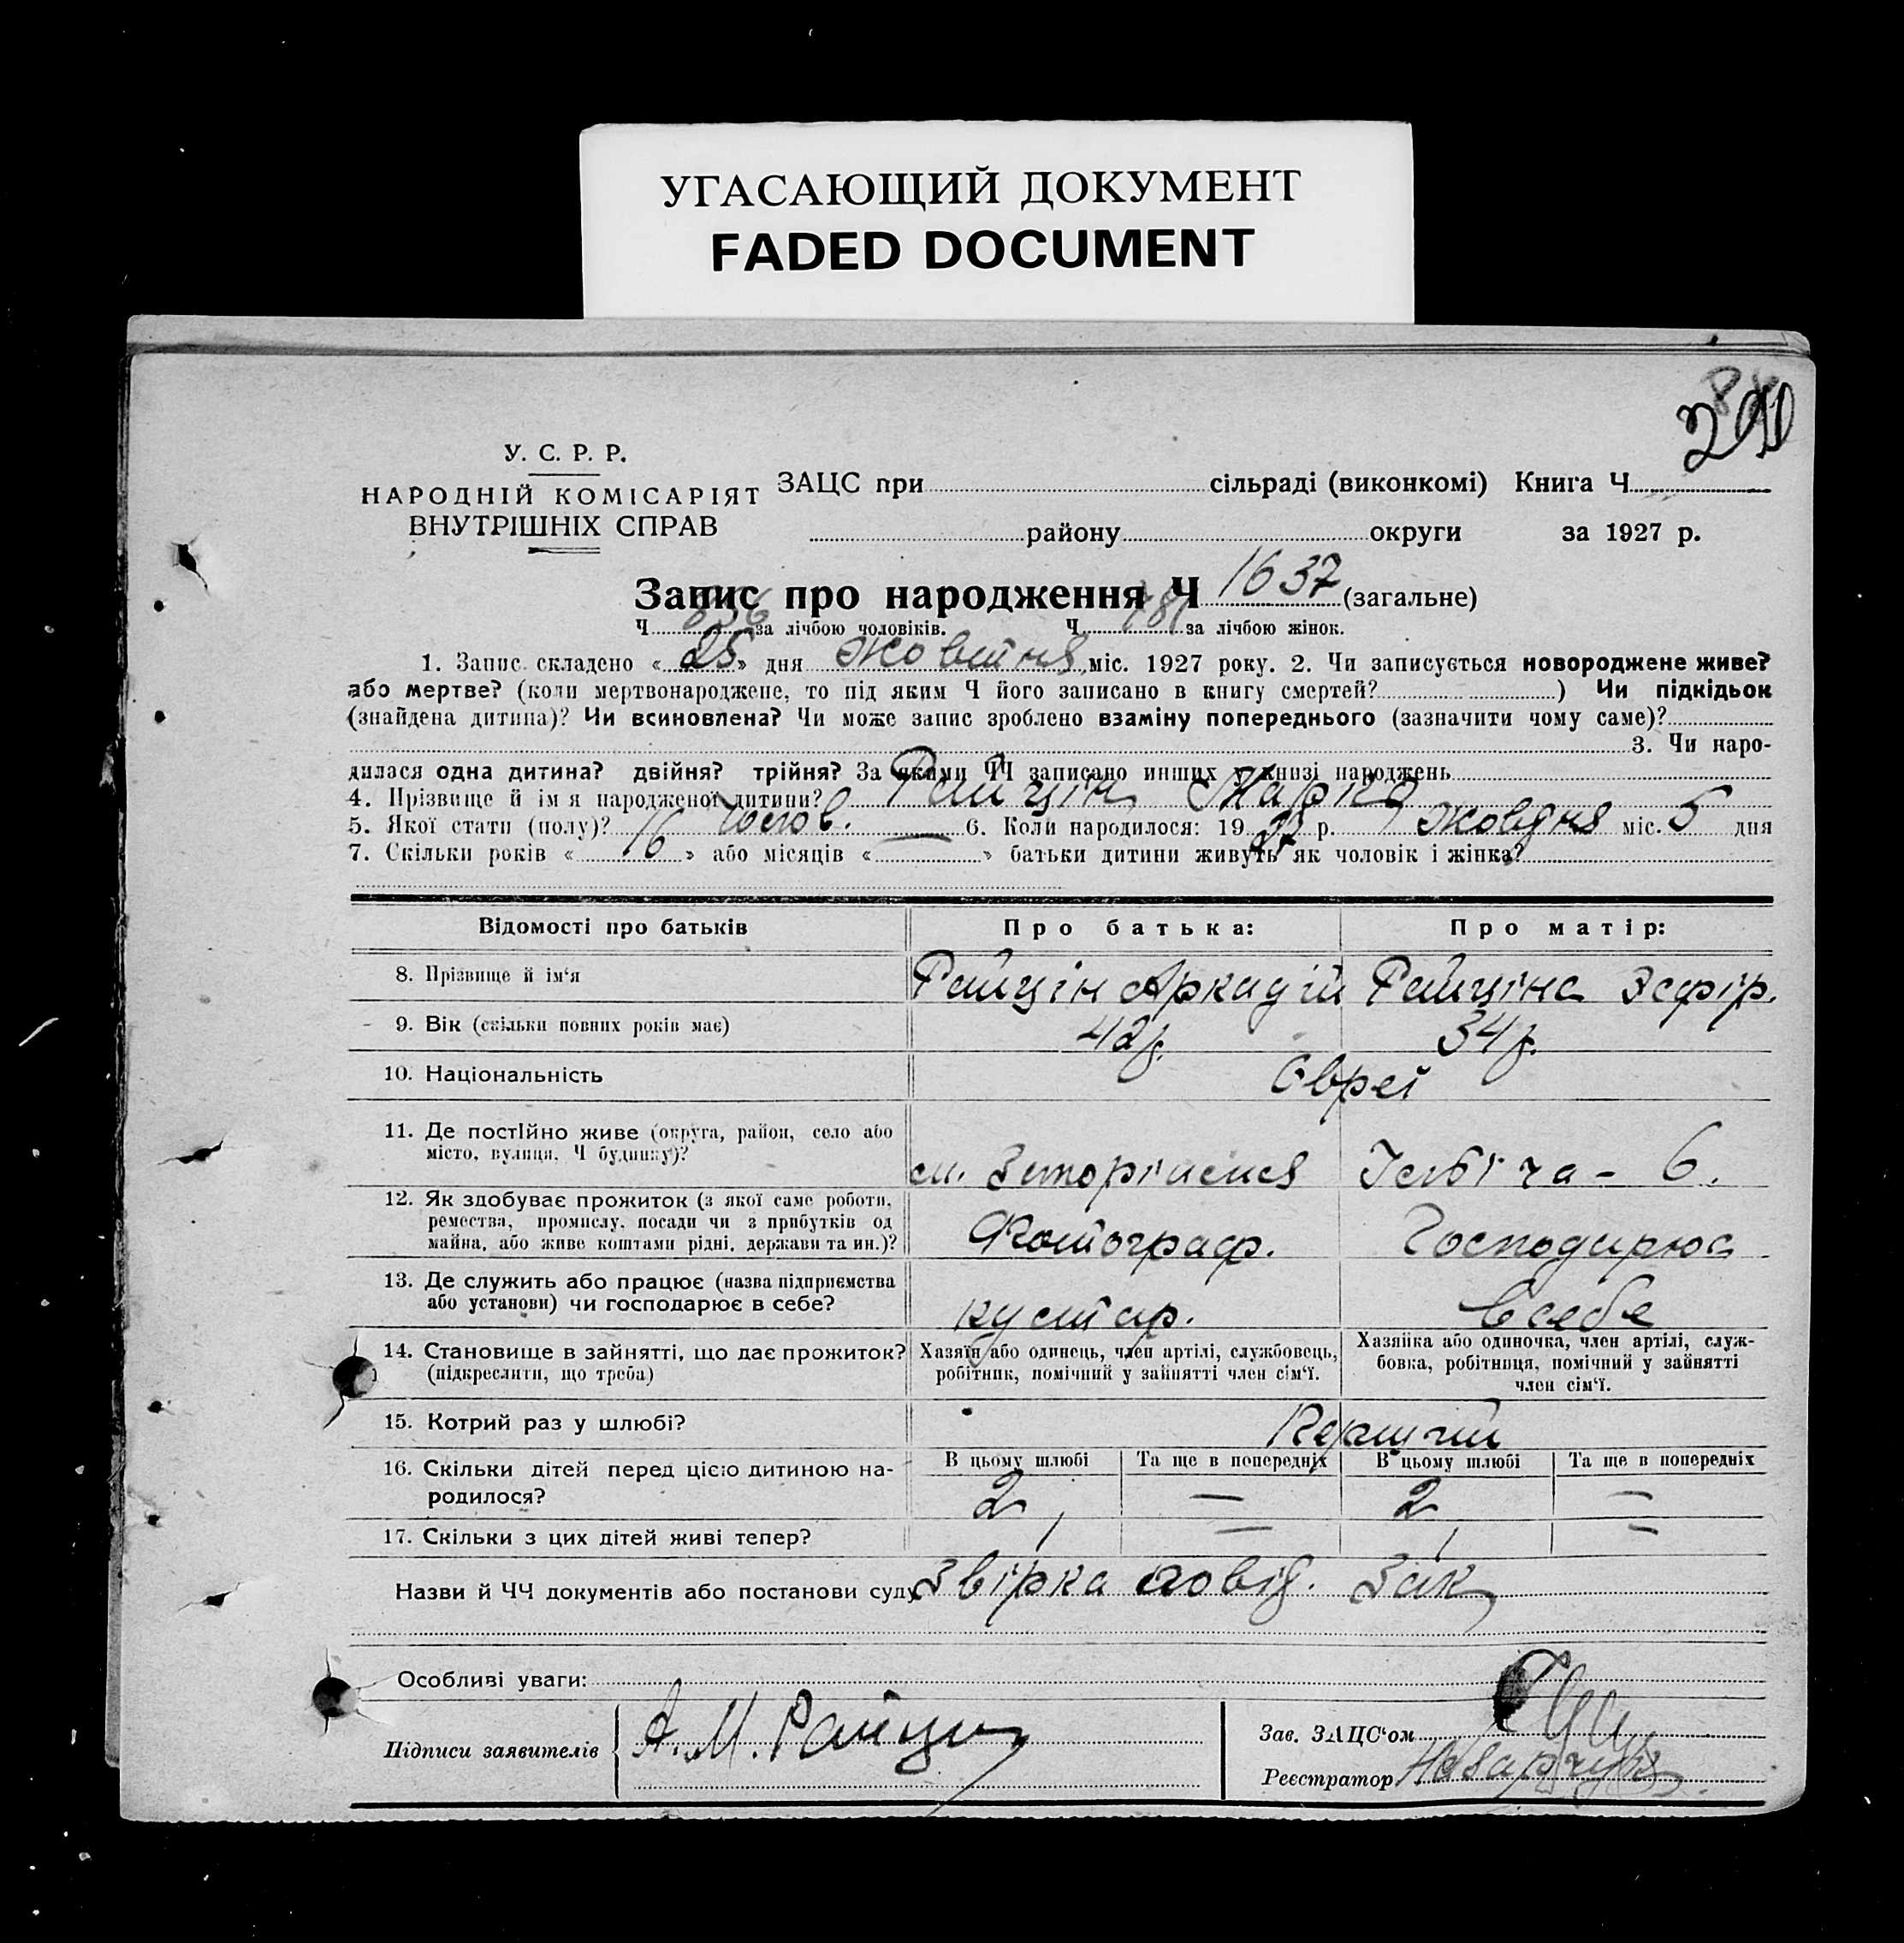 УГАСАЮЩИЙ ДОКУМЕНТ
FADED DOCUMENT
290
У. С. Р. Р.
НАРОДНІЙ КОМІСАРІЯТ
ВНУТРІШНІХ СПРАВ
ЗАЦС при сільраді (виконкомі) Книга Ч.
району округи за 1927 р.
Запис про народження Ч 1637 (загальне)
Ч. 856 за лічбою чоловіків. Ч. 781 за лічбою жінок.
1. Запис складено « 25 » дня Жовтня міс. 1927 року. 2. Чи записується новороджене живе?
або мертве? (коли мертвонароджене, то під яким Ч його записано в книгу смертей? ) Чи підкідьок
(знайдена дитина)? Чи всиновлена? Чи може запис зроблено взаміну попереднього (зазначити чому саме)?
3. Чи наро-
дилася одна дитина? двійня? трійня? За якими ЧЧ записано инших у книзі народжень
4. Прізвище й ім'я народженої дитини? Райцін Марко
5. Якої стати (полу)? Чолов. — 6. Коли народилося: 1927 р. Жовдня міс. 5 дня
7. Скільки років « 16 » або місяців « — » батьки дитини живуть як чоловік і жінка?
Відомості про батьків Про батька: Про матір:
8. Прізвище й ім‘я Райцін Аркадій Райціна Зефір.
9. Вік (скільки повних років має) 42 р. 34 р.
10. Національність Євреї
11. Де постійно живе (округа, район, село або
місто, вулиця, Ч будинку)? 6.
12. Як здобуває прожиток (з якої саме роботи,
ремества, промислу, посади чи з прибутків од
майна, або живе коштами рідні, держави та ин.)? Фотограф. Господарює
13. Де служить або працює (назва підприємства
або установи) чи господарює в себе? кустар. в себе
14. Становище в зайнятті, що дає прожиток?
(підкреслити, що треба)
Хазяїн або одинець, член артілі, службовець,
робітник, помічний у зайнятті член сім‘ї.
Хазяйка або одиночка, член артілі, служ-
бовка, робітниця, помічний у зайнятті
член сім‘ї.
15. Котрий раз у шлюбі? Перший
16. Скільки дітей перед цією дитиною на-
родилося?
В цьому шлюбі Та ще в попередніх В цьому шлюбі Та ще в попередніх
2 — 2 —
17. Скільки з цих дітей живі тепер? 1 — 1 —
Назви й ЧЧ документів або постанови суду Звірка повід. Зак
Особливі уваги:
Підписи заявителів А. М. Райцин
Зав. ЗАЦС‘ом
Реєстратор